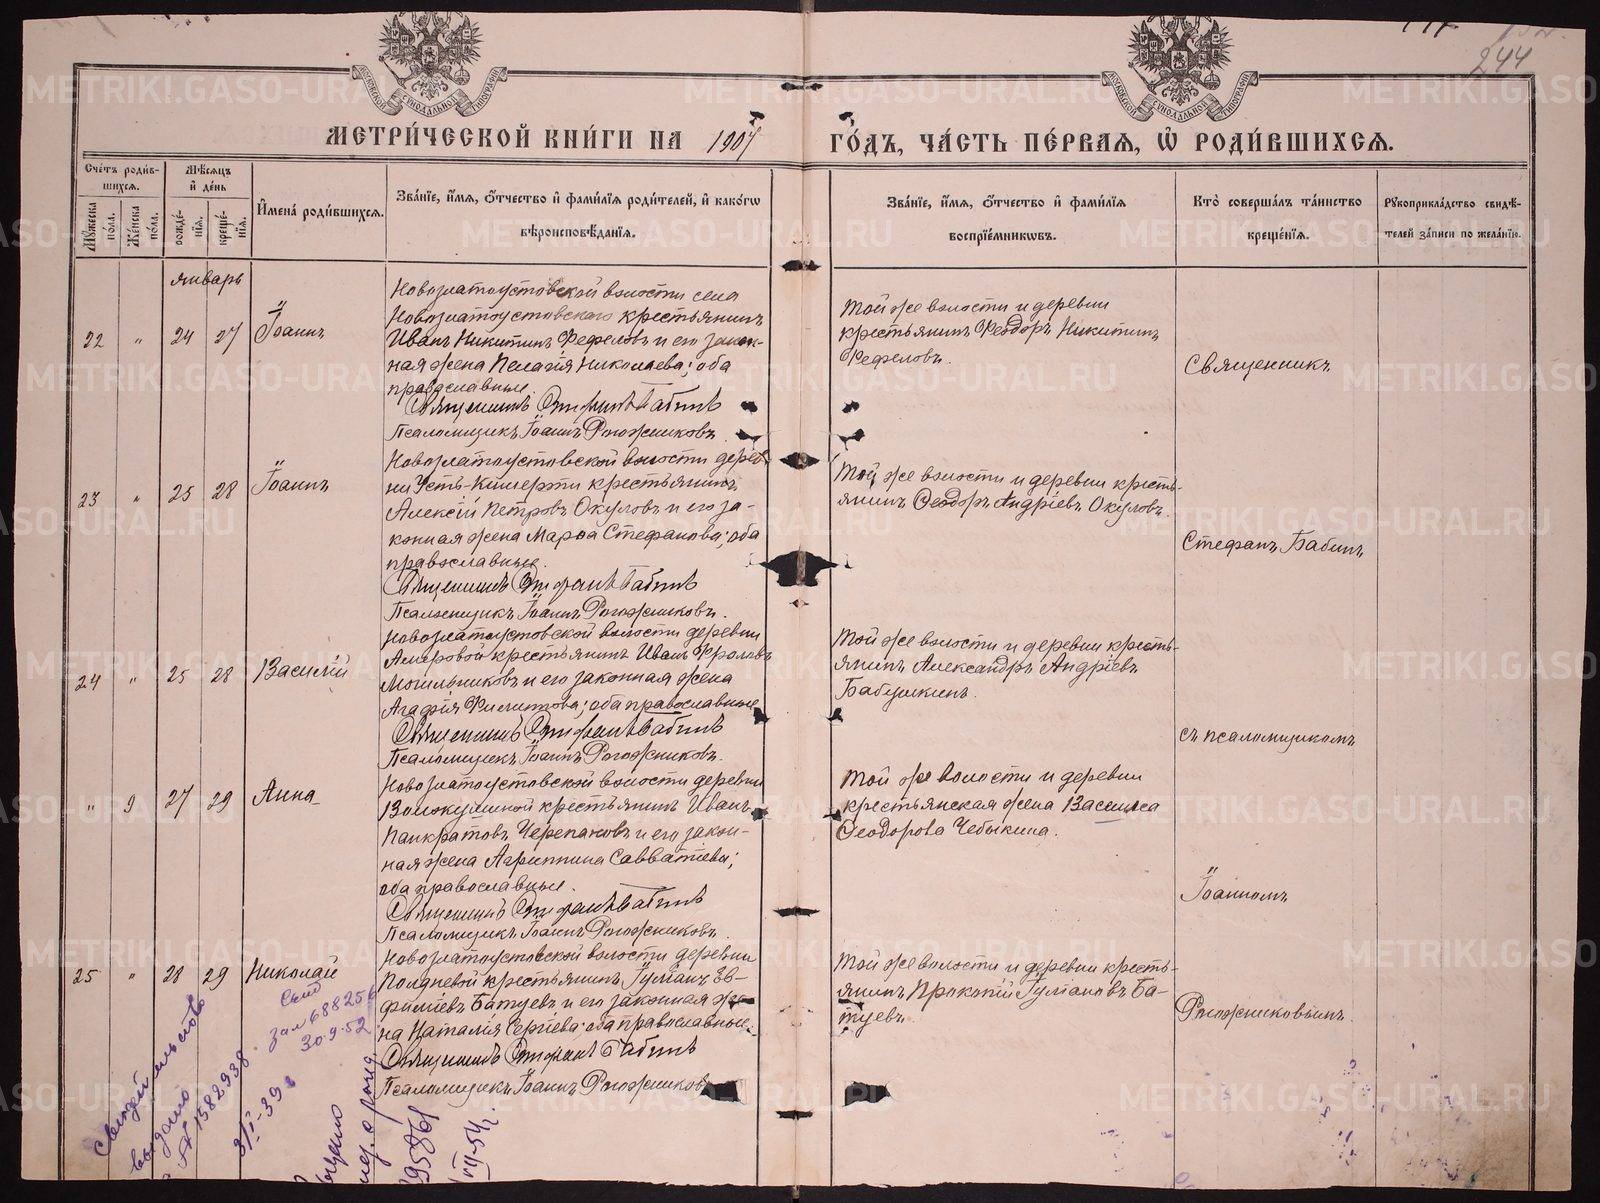 244
МЕТРИ́ЧЕСКОЙ КНИ́ГИ НА 1907 ГО́ДЪ, ЧА́СТЬ ПЕ́РВАЯ, Ѡ҆ РОДИ́ВШИХСЯ.
Сче́тъ роди́в-
шихся.
Му́жеска по́ла.
Же́нска по́ла.
Мѣ́сяцъ
и҆ де́нь
рожде́-
нїя.
креще́-
нїя.
И҆мена̀ роди́вшихся.
Зва́нїе, и҆́мя, ѻ҆́тчество и҆ фами́лїя роди́телей, и҆ како́гѡ
вѣроисповѣ́данїя.
Зва́нїе, и҆́мя, ѻ҆́тчество и҆ фами́лїя
воспрїе́мникѡвъ.
Кто̀ соверша́лъ та́инство
креще́нїя.
Рꙋкоприкла́дство свидѣ́-
телей за́писи по жела́нїю.
январь
22 " 24 27
Іоаннъ
Новозлатоустовской волости села
Новозлатоустовскаго крестьянинъ
Иванъ Никитинъ Фефеловъ и его закон-
ная жена Пелагія Николаева; оба
православные.
Священникъ Стефанъ Бабинъ
Псаломщикъ Іоаннъ Рогожниковъ.
Той же волости и деревни
крестьянинъ Феодоръ Никитинъ
Фефеловъ.
Священникъ
23 " 25 28
Іоаннъ
Новозлатоустовской волости дерев-
ни Усть-Кишерти крестьянинъ
Алексій Петровъ Окуловъ и его за-
конная жена Марѳа Стефанова; оба
православные.
Священникъ Стефанъ Бабинъ
Псаломщикъ Іоаннъ Рогожниковъ.
Той же волости и деревни кресть-
янинъ Ѳеодоръ Андріевъ Окуловъ.
Стефанъ Бабинъ
24 " 25 28
Василій
Новозлатоустовской волости деревни
Амеровой крестьянинъ Иванъ Фроловъ
Могильниковъ и его законная жена
Агафія Филиппова; оба православные
Священникъ Стефанъ Бабинъ
Псаломщикъ Іоаннъ Рогожниковъ.
Той же волости и деревни кресть-
янинъ Александръ Андріевъ
Бабушкинъ.
съ псаломщикомъ
" 9 27 29
Анна
Новозлатоустовской волости деревни
Волокушиной крестьянинъ Иванъ
Панкратовъ Черепановъ и его закон-
ная жена Агриппина Савватіева;
оба православные.
Священникъ Стефанъ Бабинъ
Псаломщикъ Іоаннъ Рогожниковъ.
Той же волости и деревни
крестьянская жена Васса
Ѳеодорова Чебыкина.
Іоанномъ
25 " 28 29
Николай
Новозлатоустовской волости деревни
Полдневой крестьянинъ Іуліанъ Ев-
фиміевъ Батуевъ и его законная же-
на Наталія Сергіева; оба православные.
Священникъ Стефанъ Бабинъ
Псаломщикъ Іоаннъ Рогожниковъ
Той же волости и деревни кресть-
янинъ Прокопій Іуліановъ Ба-
туевъ.
Рогожниковымъ.
Свид
зам 688256
30-9-52
свидетельство
выдано
№ 1582938.
METRIKI.GASO-URAL.RU